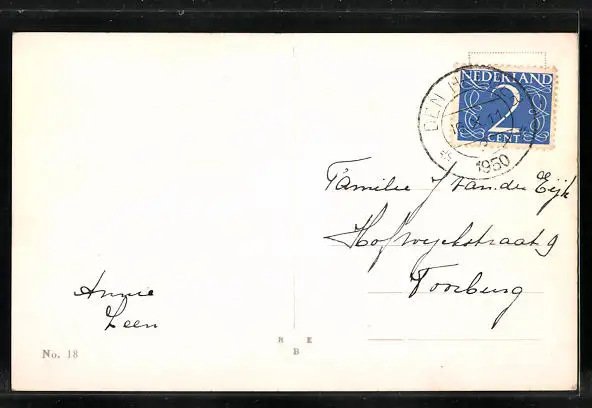 NEDERLAND
2
CENT
DEN H
1950
Familie J van der Eijk
Hofwijckstraat 9
Voorburg
Annie
Leen
R E
B
No. 18